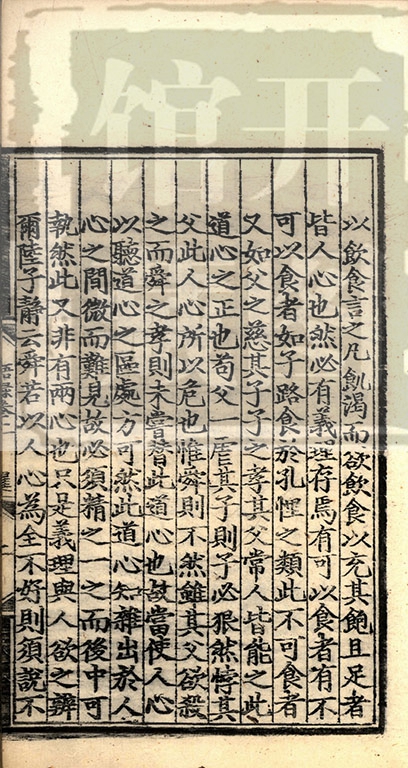 以飲食言之凡飢渴而欲飲食以充其飽且足者
皆人心也然必有義理存焉有可以食者有不
可以食者如子路食於孔悝之類此不可食者
又如父之慈其子子之孝其父常人皆能之此
道心之正也苟父一虐其子則子必狠然悖其
父此人心所以危也惟舜則不然雖其父欲殺
之而舜之孝則未嘗替此道心也故當使人心
以聽道心之區處方可然此道心却雜出於人
心之間微而難見故必須精之一之而後中可
執然此又非有兩心也只是義理與人欲之辨
爾陸子靜云舜若以人心為全不好則須說不